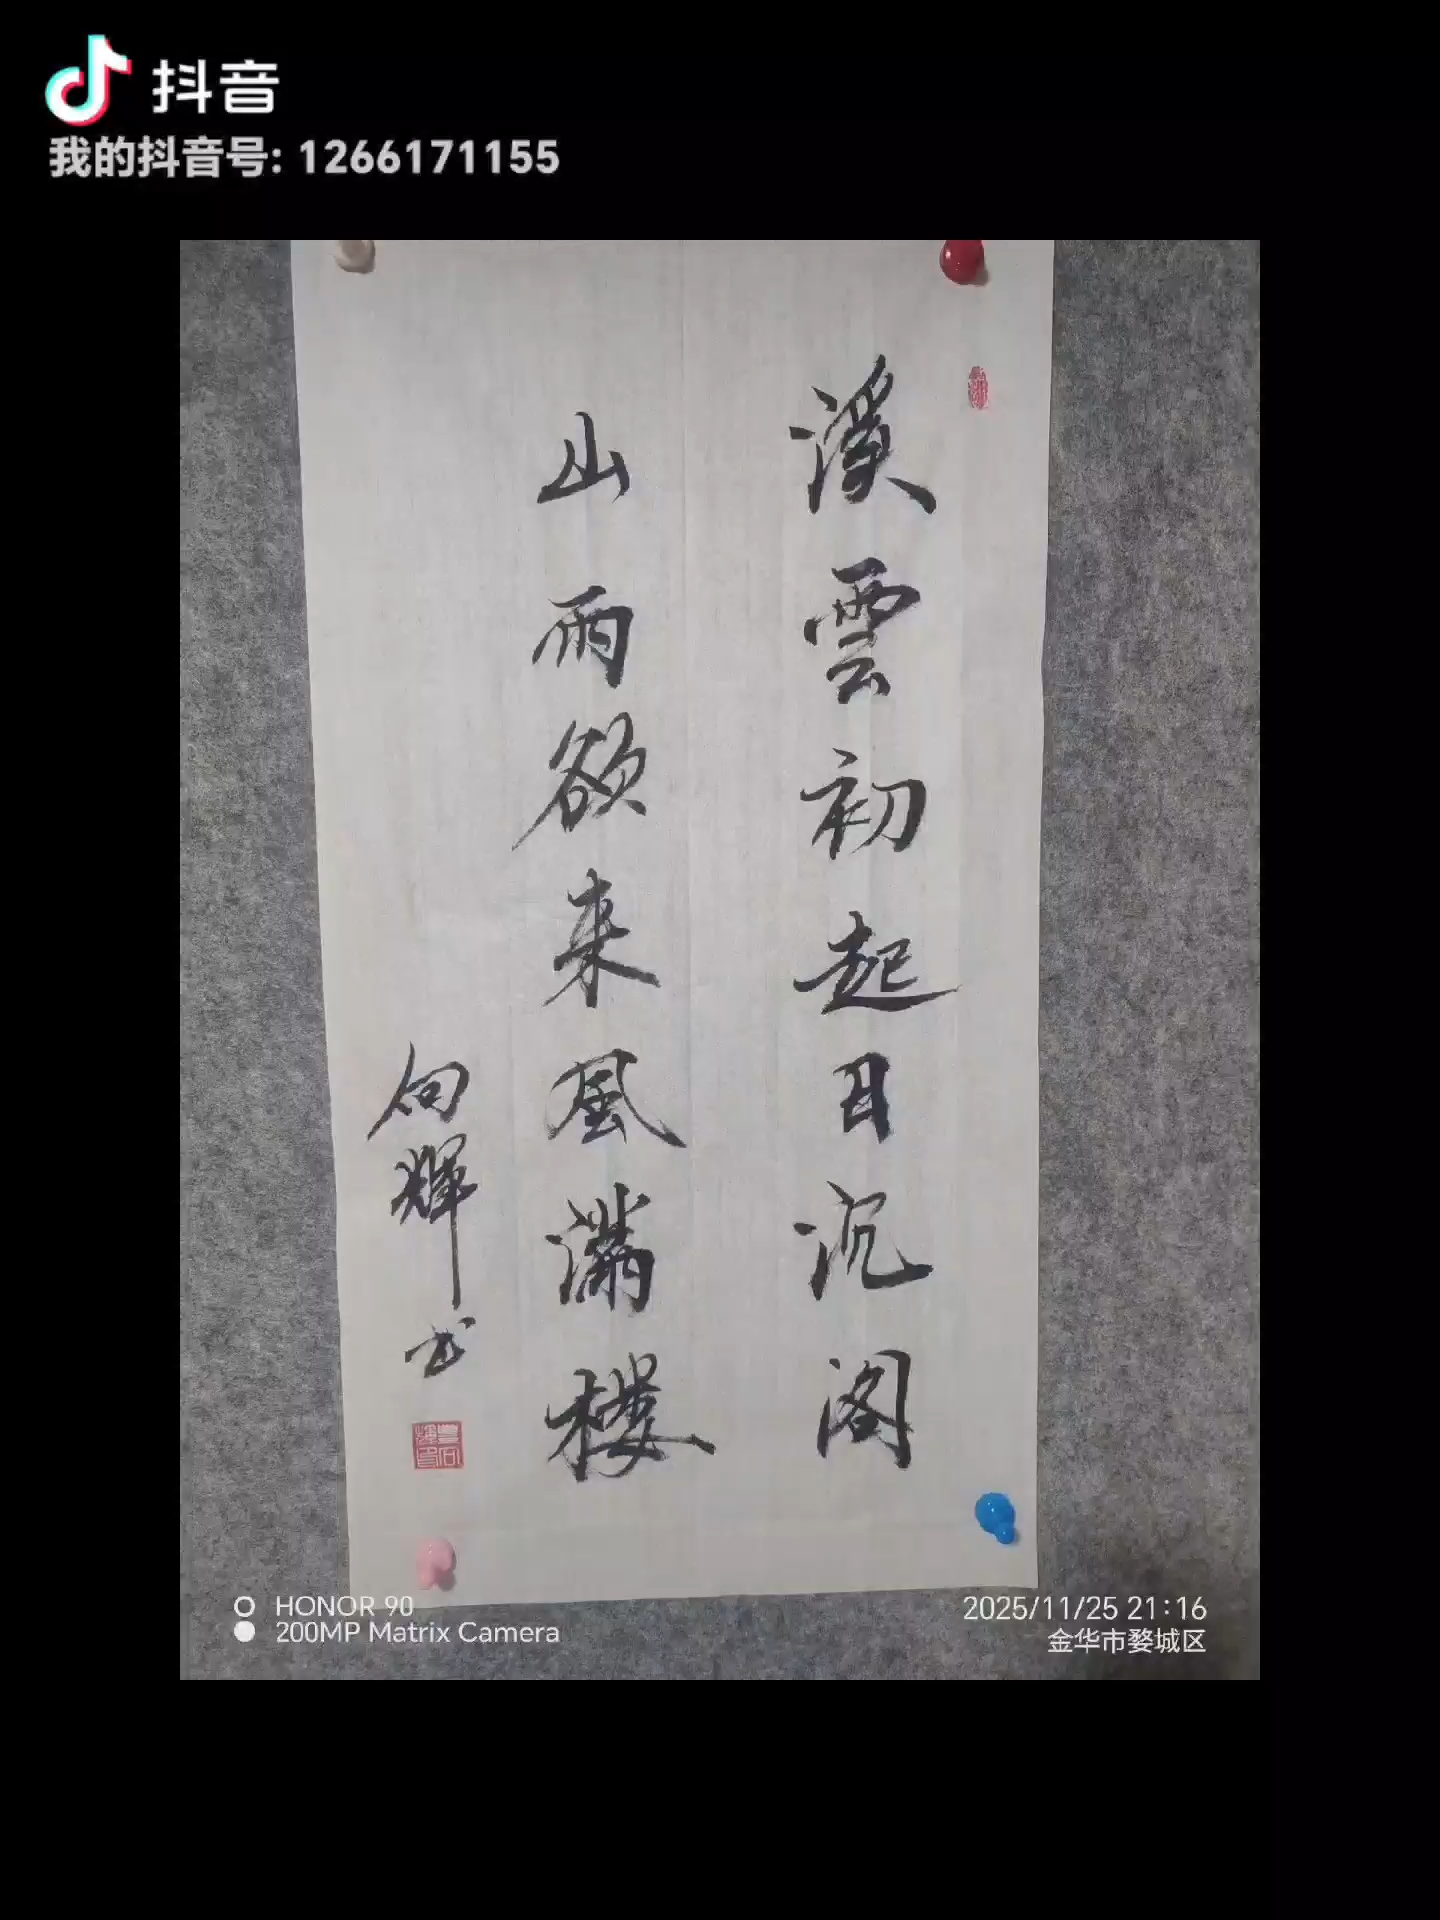 抖音
我的抖音号: 1266171155
溪雲初起日沉阁
山雨欲来風滿楼
向輝书
HONOR 90
200MP Matrix Camera
2025/11/25 21:16
金华市婺城区